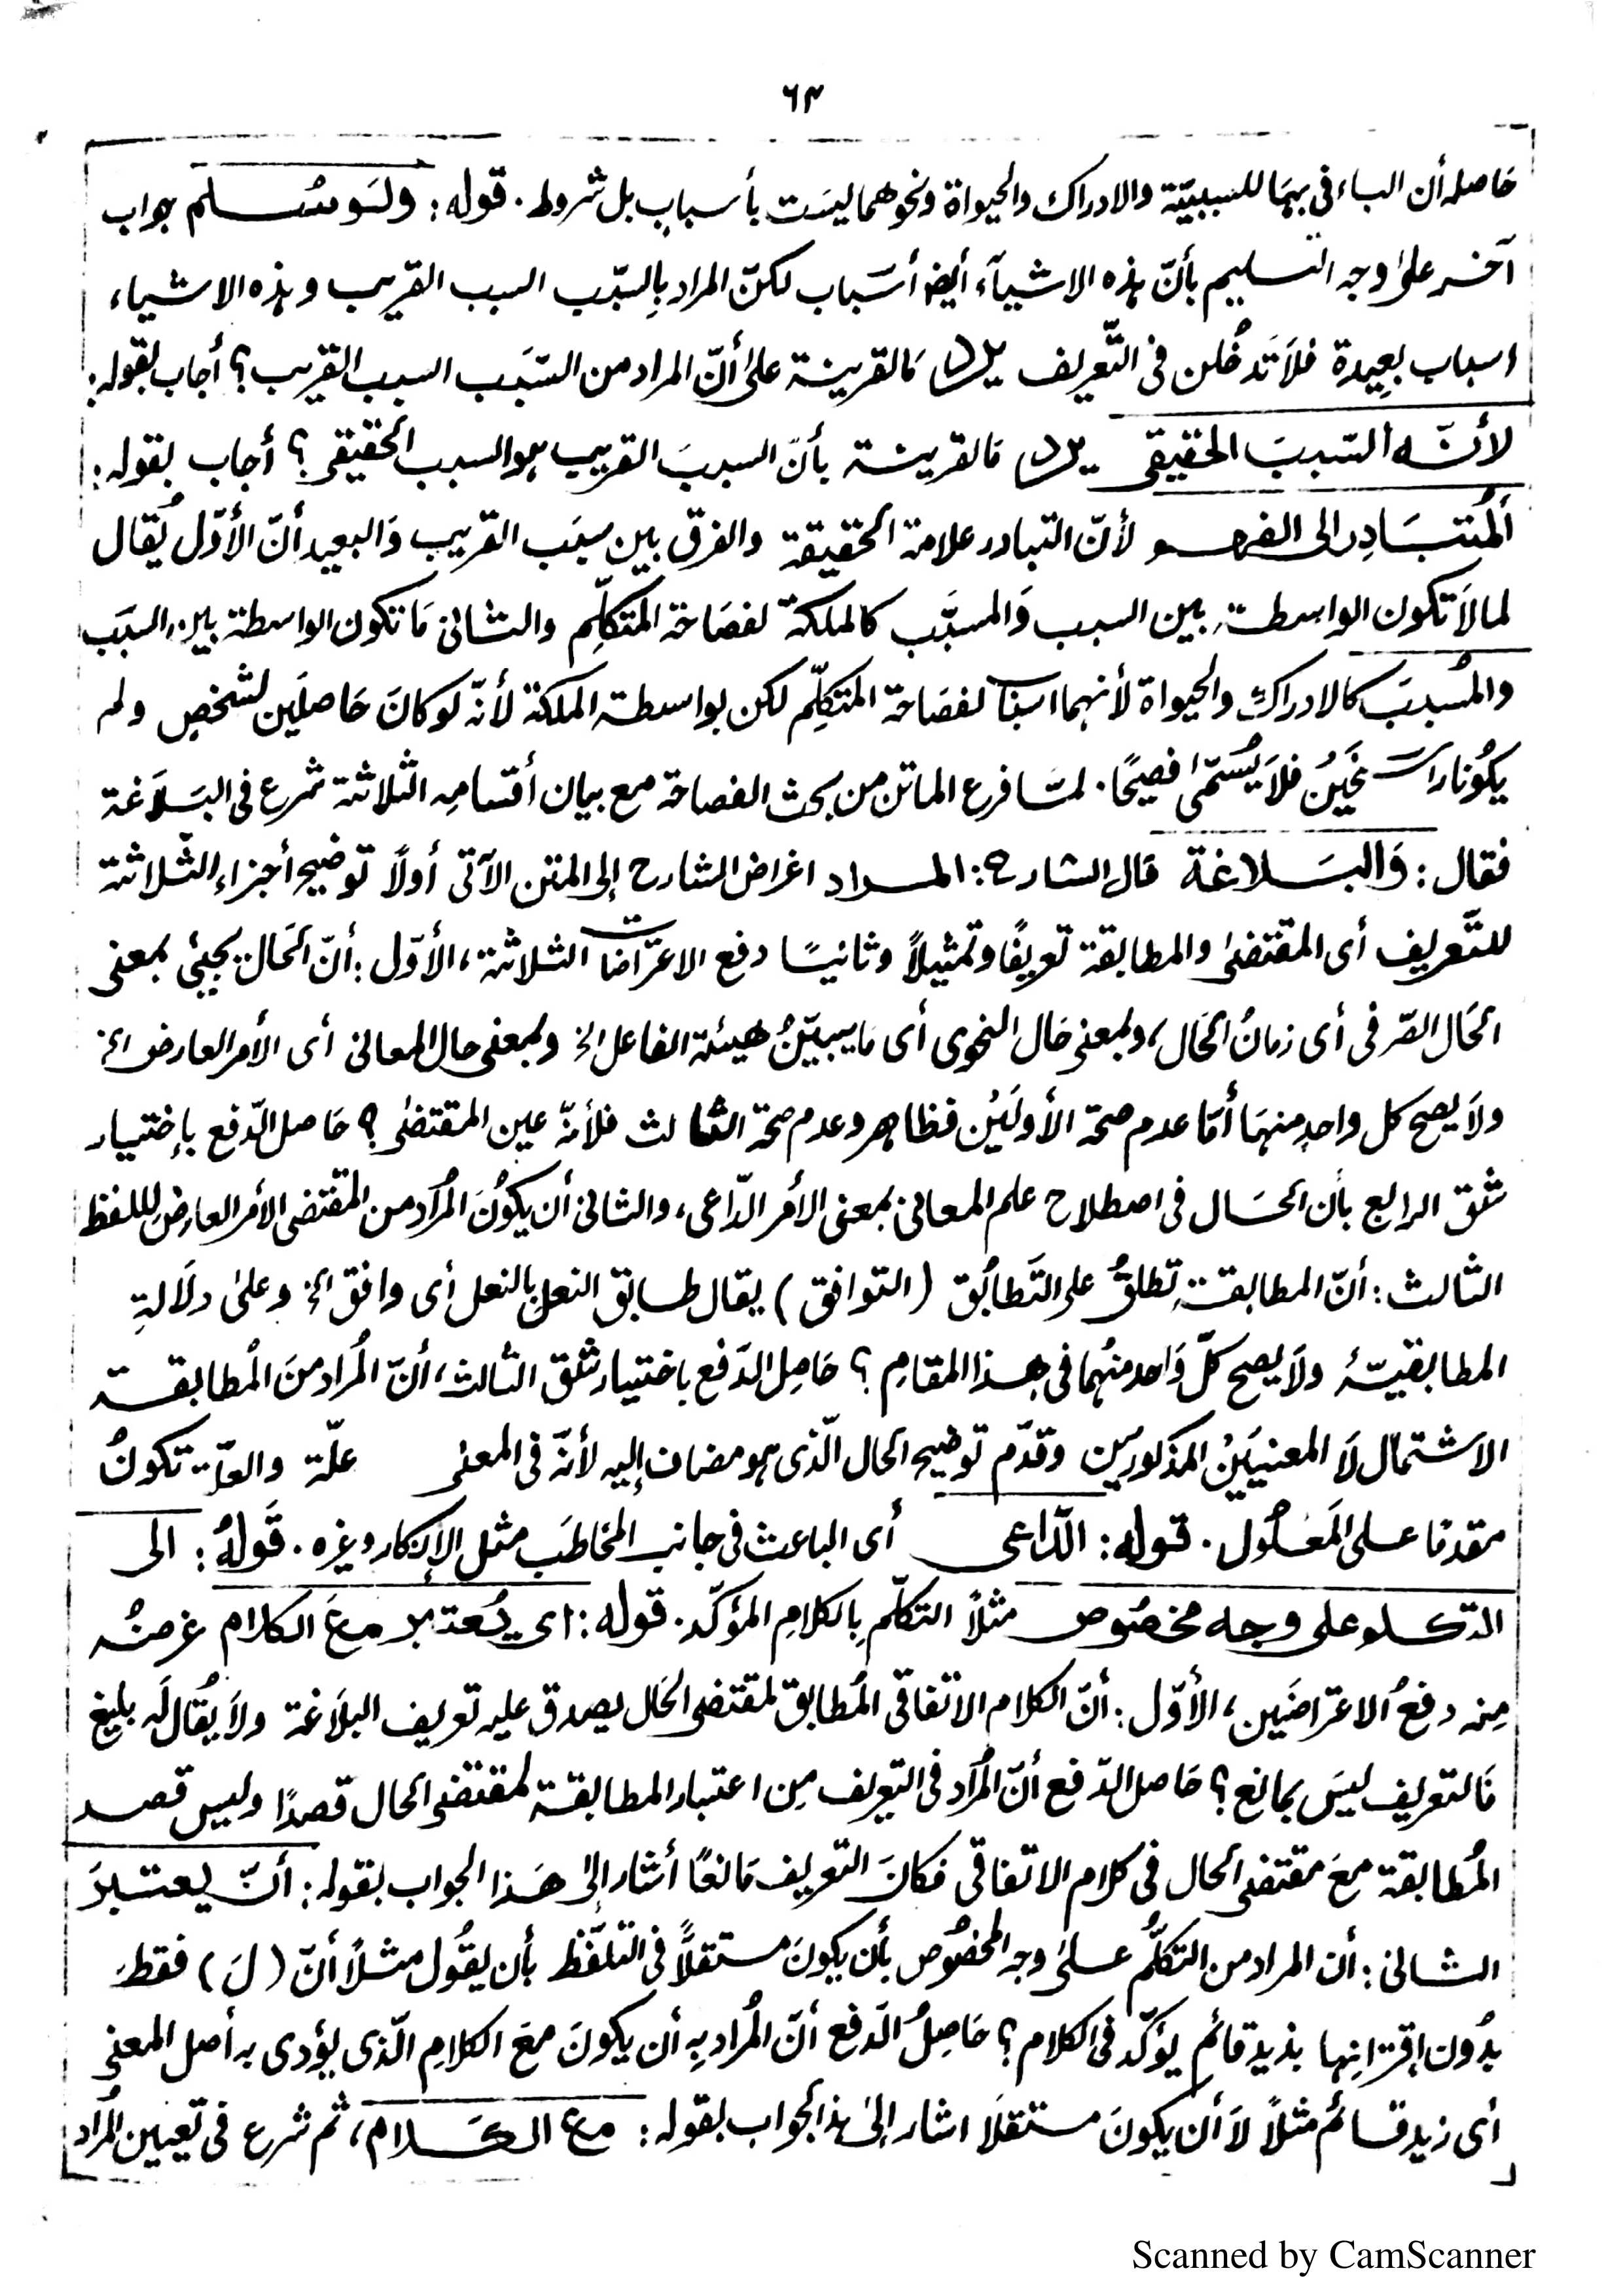 ٦٣
حَاصله أن الباء فى بهَا للسببيّة والادراك والحيواة ونحوهما ليسَت بأسبابٍ بل شروط. قوله: ولَو سُلم جواب
آخر علىٰ وجه التسليم بأنّ هٰذه الاشيآء أيضا أسَباب لكنّ المراد بِالسبّب السبب القريب وهٰذه الاشياء
اسباب بعِيدة فلاَ تَدخُلن فى التَّعريف يرد مَالقرينة علىٰ أنّ المراد من السّبَب السبب القريب؟ أجاب بقوله:
لأنّه السّببَ الحقيقى يرد مَالقرينة بأنّ السببَ القريب هو السبب الحقيقى؟ أجاب بقوله:
اَلمُتبَادِر الى الفهم لأنّ التبادر علامة الحقيقة والفرق بين سبَب القريب وَالبعيد أنّ الأوّل يُقال
لما لاَ تكون الواسطة بين السبب وَالمسبَّب كالملكة لفصَاحة المتكلِّم والثانى مَا تكون الواسطة بين السبَب
والمُسببَ كالادراك والحيواة لأنهما اسبٰبا لفصَاحة المتكلِّم لكن بواسطة الملكة لأنّه لو كانَ حَاصلَين لشخصٍ ولم
يكُونا راسخَينُ فلاَ يُسَمّىٰ فصيحًا. لمّا فرع الماتن من بحث الفصاحة مع بيان أقسامِه الثلاثة شرع فى البَلاَغة
فقال: وَالبَلاغة قال الشارح: المراد اغراض الشارح إلى المتن الآتى أولاً توضيح أجزاء الثّلاثة
للتَّعريف أى المقتضىٰ والمطابقة تعريفًا وتمثيلاً وثانيًا دفع الاعتراضات الثلاثة، الأوّل: أنّ الحَال يجيئ بمعنى
الحَال الصّرفى أى زمانُ الحَال، وبمعنى حَال النحوى أى مَا يبيّنُ هيئة الفاعل الخ وبمعنى حال المعانى أى الأمر العارض الخ
ولاَ يصح كل واحدٍ منهمَا أمّا عدم صحّة الأولَيُن فظاهر وعدم صحّة الثالث فلأنّهٗ عين المقتضىٰ؟ حَاصل الدّفع بإختيار
شق الرابع بأن الحَال فى اصطلاح علم المعانى بمعنى الأمر الدّاعى، والثانى أن يكوُنَ المُرَاد من المقتضى الأمر العارض لللفظ
الثالث: أنّ المطابقة تطلقُ على التَّطابُق (التوافق) يقال طابق النعل بالنعل أى وافق الخ وعلىٰ دلَالةِ
المطابقيّة ولَا يصح كلّ وَاحد منهُما فى هذا المقامِ؟ حَاصِل الدَفع باختيار شق الثالث، أنّ المُرَاد منَ المُطابقة
الاشتمال لَا المعنيَيُنِ المذكورَين وقدّم توضيح الحال الّذى هو مضاف إليه لأنّهٗ فى المعنى علّة والعلّة تكونُ
مقدمًا على المَعلُول. قوله: الدّاعى أى الباعث فى جانب المخاطَب مثل الإنكار وغيره. قَولهُ: الى
التكلم على وجه مخصُوص مثلاً التكلّم بِالكلامِ المؤكّد. قوله: اى يُعتبر معَ الكلام غرضُه
مِنه دفعُ الاعتراضَين، الأوّل: أنّ الكلام الاتفاقى المُطابق لمقتضى الحَال يصدق عليه تعريف البلاَغة ولاَ يُقال لَه بليغ
فَالتعريف ليسَ بمانع؟ حَاصل الدّفع أنّ المُرَاد فى التعريف مِن اعتبار المطابقة لمقتضى الحال قصدًا وليس قصد
المُطابقة معَ مقتضى الحال فى كلام الاتفاقى فكانَ التعريف مَانعًا أشار إلىٰ هَذا الجواب بقوله: أنّ يعتبرَ
الثانى: أن المراد من التكلُّم علىٰ وجه المخصُوص بأن يكونَ مستقلاًّ فى التلفّظ بأن يقُول مثلاً أنّ (لَ) فقط
بدُون إقترانِها بذيد قائم يؤكّد فى الكلام؟ حَاصِلُ الدَفع أنّ المُراد بِه أن يكونَ معَ الكلامِ الّذى يؤدى به أصل المعنى
أى زيد قائم مثلاً لاَ أن يكونَ مستقلاَ اشار إلىٰ هٰذ الجواب بقوله: مع الكَلام، ثم شرع فى تعيين المُراد
Scanned by CamScanner